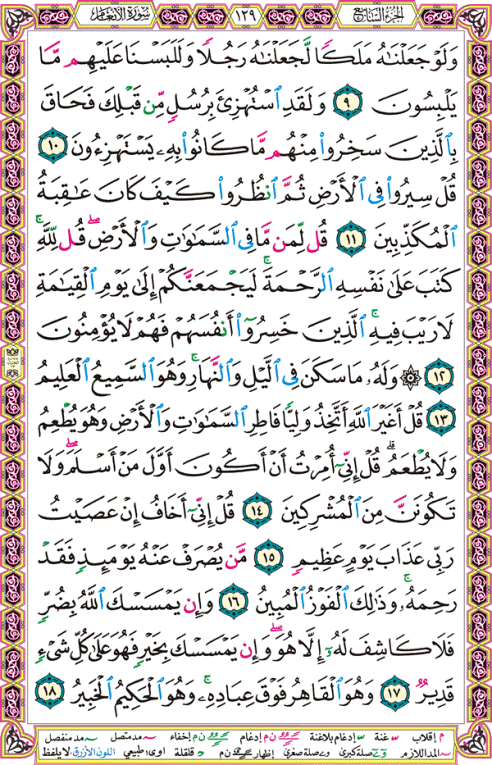 الجزء السابع ١٢٩ سورة الأنعام
وَلَوْ جَعَلْنَٰهُ مَلَكًا لَّجَعَلْنَٰهُ رَجُلًا وَلَلَبَسْنَا عَلَيْهِم مَّا
يَلْبِسُونَ ٩ وَلَقَدِ ٱسْتُهْزِئَ بِرُسُلٍ مِّن قَبْلِكَ فَحَاقَ
بِٱلَّذِينَ سَخِرُوا۟ مِنْهُم مَّا كَانُوا۟ بِهِۦ يَسْتَهْزِءُونَ ١٠
قُلْ سِيرُوا۟ فِى ٱلْأَرْضِ ثُمَّ ٱنظُرُوا۟ كَيْفَ كَانَ عَٰقِبَةُ
ٱلْمُكَذِّبِينَ ١١ قُل لِّمَن مَّا فِى ٱلسَّمَٰوَٰتِ وَٱلْأَرْضِ ۖ قُل لِّلَّهِ ۚ
كَتَبَ عَلَىٰ نَفْسِهِ ٱلرَّحْمَةَ ۚ لَيَجْمَعَنَّكُمْ إِلَىٰ يَوْمِ ٱلْقِيَٰمَةِ
لَا رَيْبَ فِيهِ ۚ ٱلَّذِينَ خَسِرُوٓا۟ أَنفُسَهُمْ فَهُمْ لَا يُؤْمِنُونَ
١٢ ۞ وَلَهُۥ مَا سَكَنَ فِى ٱلَّيْلِ وَٱلنَّهَارِ ۚ وَهُوَ ٱلسَّمِيعُ ٱلْعَلِيمُ
١٣ قُلْ أَغَيْرَ ٱللَّهِ أَتَّخِذُ وَلِيًّا فَاطِرِ ٱلسَّمَٰوَٰتِ وَٱلْأَرْضِ وَهُوَ يُطْعِمُ
وَلَا يُطْعَمُ ۗ قُلْ إِنِّىٓ أُمِرْتُ أَنْ أَكُونَ أَوَّلَ مَنْ أَسْلَمَ ۖ وَلَا
تَكُونَنَّ مِنَ ٱلْمُشْرِكِينَ ١٤ قُلْ إِنِّىٓ أَخَافُ إِنْ عَصَيْتُ
رَبِّى عَذَابَ يَوْمٍ عَظِيمٍ ١٥ مَّن يُصْرَفْ عَنْهُ يَوْمَئِذٍ فَقَدْ
رَحِمَهُۥ ۚ وَذَٰلِكَ ٱلْفَوْزُ ٱلْمُبِينُ ١٦ وَإِن يَمْسَسْكَ ٱللَّهُ بِضُرٍّ
فَلَا كَاشِفَ لَهُۥٓ إِلَّا هُوَ ۖ وَإِن يَمْسَسْكَ بِخَيْرٍ فَهُوَ عَلَىٰ كُلِّ شَىْءٍ
قَدِيرٌ ١٧ وَهُوَ ٱلْقَاهِرُ فَوْقَ عِبَادِهِۦ ۚ وَهُوَ ٱلْحَكِيمُ ٱلْخَبِيرُ ١٨
م إقلاب غنة إدغام بلاغنة ن م إدغام ن م إخفاء مد متصل مد منفصل
المد اللازم صلة كبرى صلة صغرى إظهار ن م قلقلة اوى: طبيعي اللون الأزرق: لا يلفظ